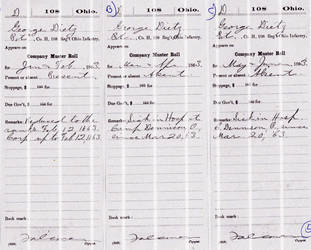 D 108 Ohio.
George Dietz
Co. H, 108 Reg't Ohio Infantry.
Appears on
Company Muster Roll
for Jan & Feb, 1863.
Present or absent Present
Stoppage, $ 100 for
Due Gov't, $ 100 for
Remarks: Reduced to the
ranks Feb 12, 1863.
Corp up to Feb 12, 1863
Book mark:
(358) Copyist.
B
D 108 Ohio.
George Dietz
Co. H, 108 Reg't Ohio Infantry.
Appears on
Company Muster Roll
for Mar & Apr, 1863.
Present or absent Absent
Stoppage, $ 100 for
Due Gov't, $ 100 for
Remarks: Sick in Hosp at
Camp Dennison O, since
Mar 20, 63.
Book mark:
(358) Copyist.
C
D 108 Ohio.
George Dietz
Co. H, 108 Reg't Ohio Infantry.
Appears on
Company Muster Roll
for May & June, 1863.
Present or absent Absent.
Stoppage, $ 100 for
Due Gov't, $ 100 for
Remarks: Sick in Hosp
Dennison O, since
Mar 20, 63.
Book mark:
(358) Copyist.